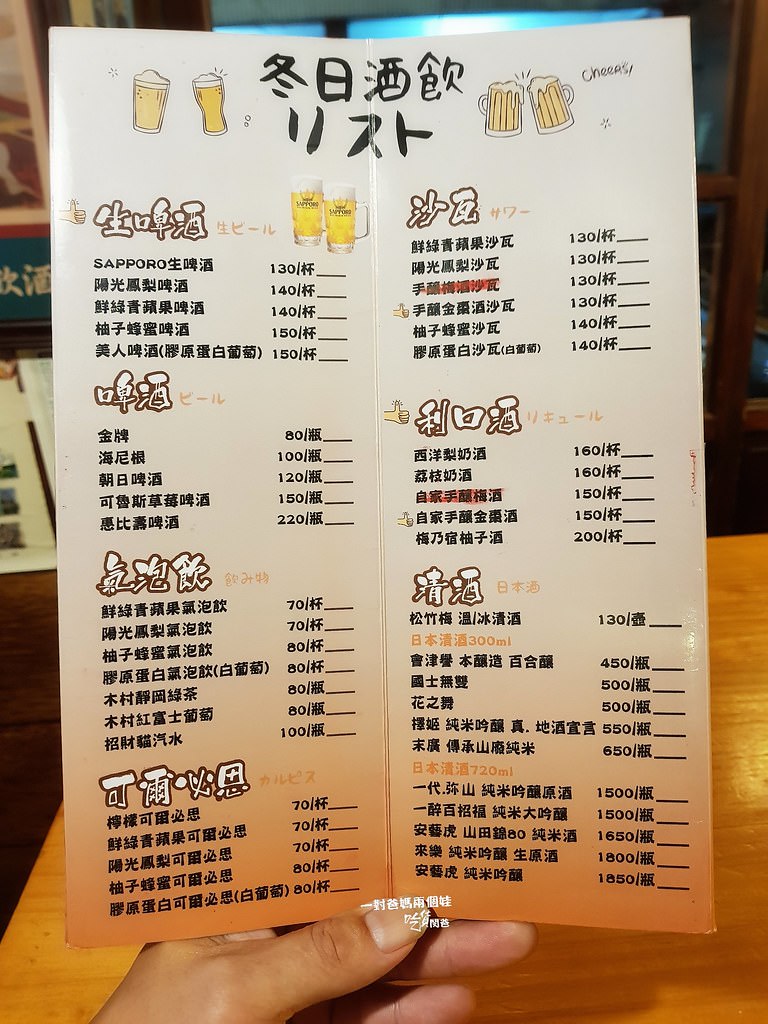 冬日酒飲
リスト
Cheers!
飲酒
生啤酒 生ビール
SAPPORO
SAPPORO
SAPPORO生啤酒 130/杯
陽光鳳梨啤酒 140/杯
鮮綠青蘋果啤酒 140/杯
柚子蜂蜜啤酒 150/杯
美人啤酒(膠原蛋白葡萄) 150/杯
啤酒 ビール
金牌 80/瓶
海尼根 100/瓶
朝日啤酒 120/瓶
可魯斯草莓啤酒 150/瓶
惠比壽啤酒 220/瓶
氣泡飲 飲み物
鮮綠青蘋果氣泡飲 70/杯
陽光鳳梨氣泡飲 70/杯
柚子蜂蜜氣泡飲 80/杯
膠原蛋白氣泡飲(白葡萄) 80/杯
木村靜岡綠茶 80/瓶
木村紅富士葡萄 80/瓶
招財貓汽水 100/瓶
可爾必思 カルピス
檸檬可爾必思 70/杯
鮮綠青蘋果可爾必思 70/杯
陽光鳳梨可爾必思 70/杯
柚子蜂蜜可爾必思 80/杯
膠原蛋白可爾必思(白葡萄) 80/杯
沙瓦 サワー
鮮綠青蘋果沙瓦 130/杯
陽光鳳梨沙瓦 130/杯
手釀梅酒沙瓦 130/杯
手釀金棗酒沙瓦 130/杯
柚子蜂蜜沙瓦 140/杯
膠原蛋白沙瓦(白葡萄) 140/杯
利口酒 リキュール
西洋梨奶酒 160/杯
荔枝奶酒 160/杯
自家手釀梅酒 150/杯
自家手釀金棗酒 150/杯
梅乃宿柚子酒 200/杯
清酒 日本酒
松竹梅 溫/冰清酒 130/壺
日本清酒300ml
會津譽 本釀造 百合釀 450/瓶
國士無雙 500/瓶
花之舞 500/瓶
擇姬 純米吟釀 真.地酒宣言 550/瓶
末廣 傳承山廢純米 650/瓶
日本清酒720ml
一代.弥山 純米吟釀原酒 1500/瓶
一醉百招福 純米大吟釀 1500/瓶
安藝虎 山田錦80 純米酒 1650/瓶
來樂 純米吟釀 生原酒 1800/瓶
安藝虎 純米吟釀 1850/瓶
一對爸媽兩個娃
吃貨閔爸